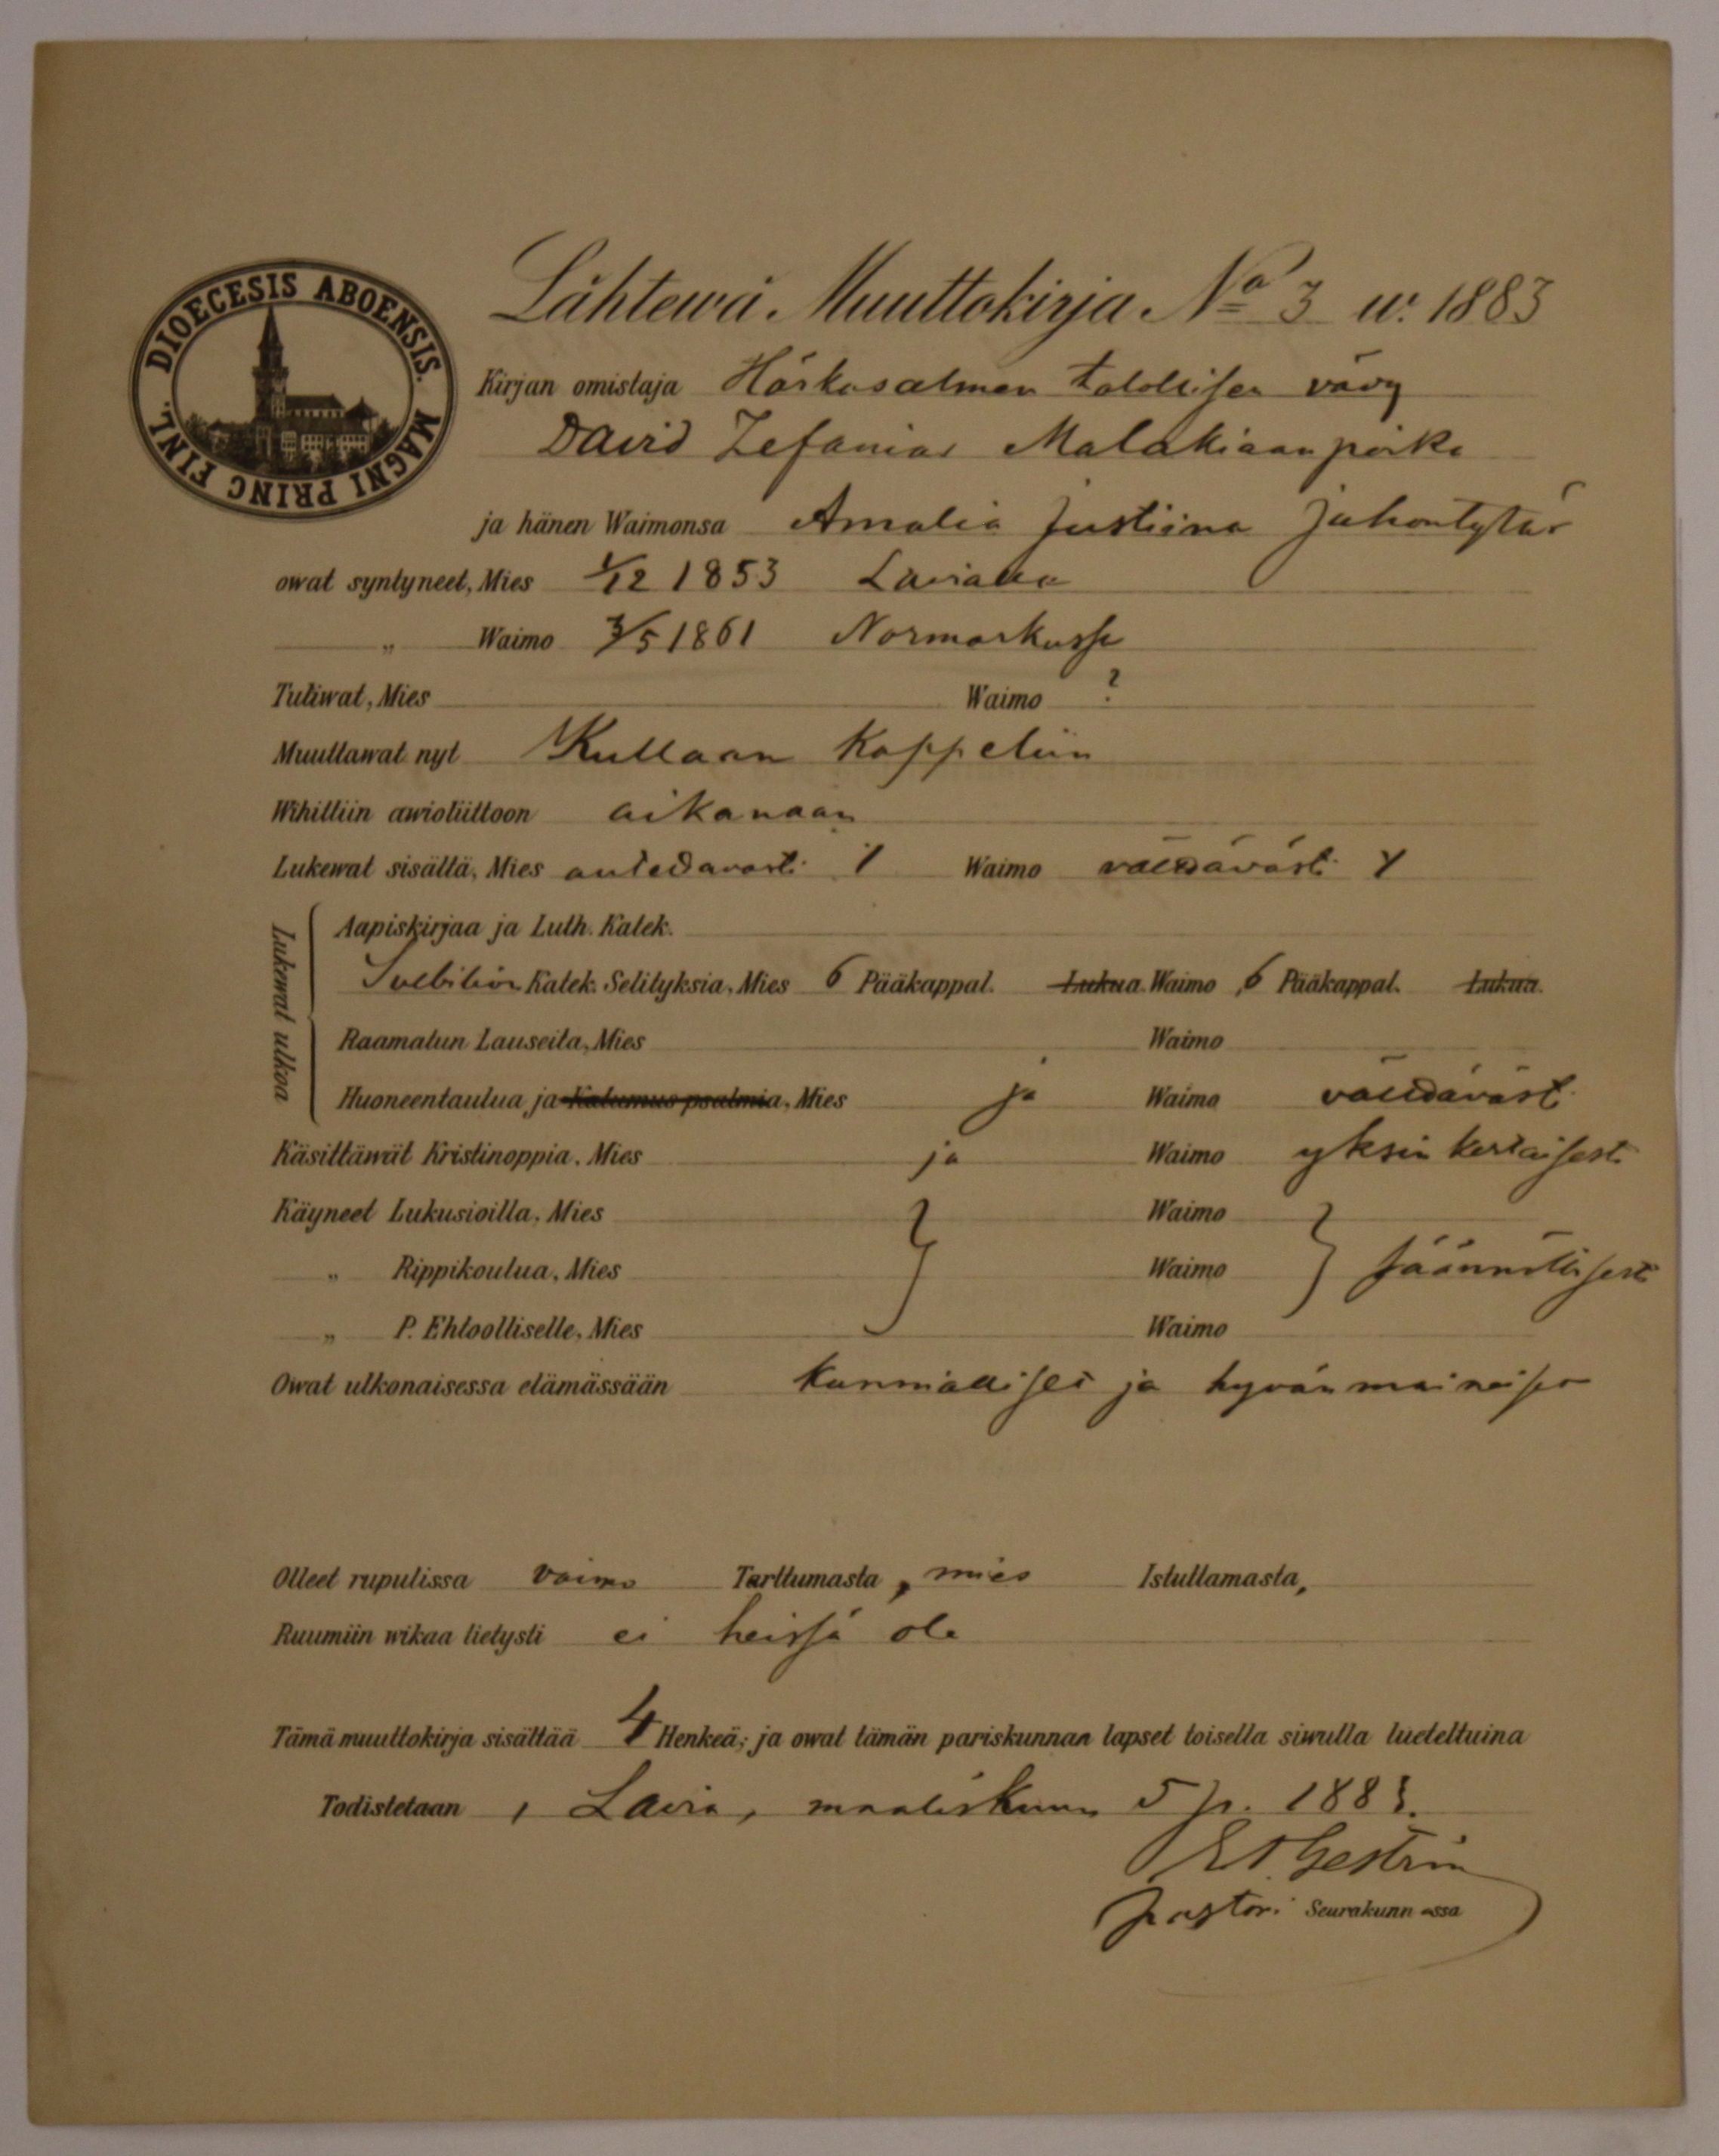 DIOECESIS ABOENSIS. MAGNI PRINC FINL.
Lähtewä Muuttokirja No 3 w. 1883
Kirjan omistaja Härkäsalmen talollisen vävy
David Zefanias Malakiaanpoika
ja hänen Waimonsa Amalia Justiina Juhontytär
owat syntyneet, Mies 1/12 1853 Lavialla
„ Waimo 3/5 1861 Normarkussa
Tuliwat, Mies Waimo ?
Muuttawat nyt Kullaan Kappeliin
Wihittiin awioliittoon aikanaan
Lukewat sisältä, Mies autettavasti Waimo välttävästi
Lukewat ulkoa
Aapiskirjaa ja Luth. Katek.
Svebilion Katek. Selityksiä, Mies 6 Pääkappal. Lukua. Waimo 6 Pääkappal. Lukua.
Raamatun Lauseita, Mies Waimo
Huoneentaulua ja Katumus psalmia, Mies ja Waimo välttävästi
Käsittäwät Kristinoppia, Mies ja Waimo yksinkertaisesti
Käyneet Lukusioilla, Mies Waimo
„ Rippikoulua, Mies Waimo säännöllisesti
„ P. Ehtoolliselle, Mies Waimo
Owat ulkonaisessa elämässään kunnialliset ja hyvänmaineiset
Olleet rupulissa vaimo Tarttumasta, mies Istuttamasta,
Ruumiin wikaa tietysti ei heissä ole
Tämä muuttokirja sisältää 4 Henkeä; ja owat tämän pariskunnan lapset toisella siwulla lueteltuina
Todistetaan, Lavia, maaliskuun 5 p. 1883.
Gestrin
pastori Seurakunnassa